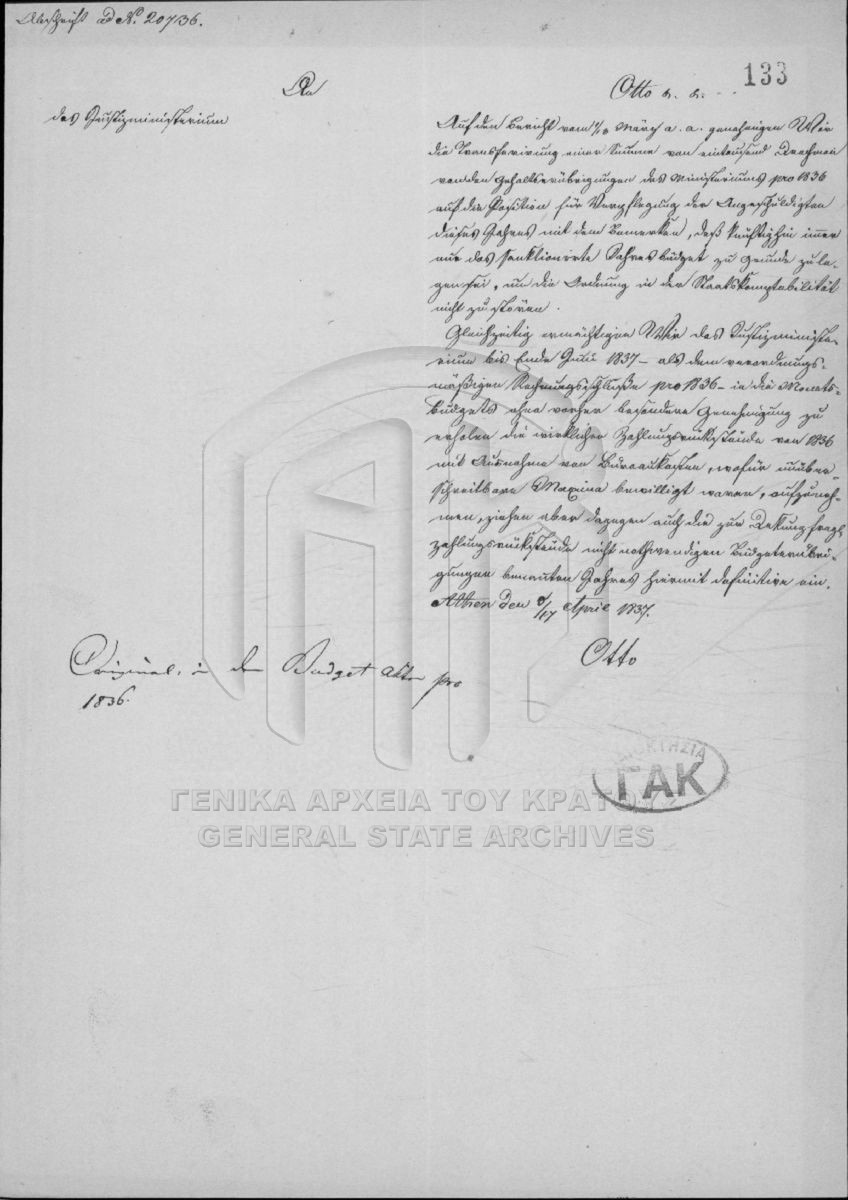 Abschrift ad No. 207/36.
133
An
das Justizministerium
Otto
Auf den Bericht vom März a. a. genehmigen Wir
die Transferirung einer Summe von eintausend Drachmen
von den Gehaltserübrigungen des Ministeriums pro 1836
auf die Position für Verpflegung der Angeschuldigten
dieses Jahres mit dem Bemerken, daß künftighin immer
nur das sanktionirte Jahresbudget zu Grunde zu le-
gen sei, um die Ordnung in der Staatskomptabilität
nicht zu stören.
Gleichzeitig ermächtigen Wir das Justizministe-
rium bis Ende Juni 1837 – als dem verordnungs-
mäßigen Rechnungsschluße pro 1836 – in die Monats-
budgets ohne vorher besondere Genehmigung zu
erholen die wirklichen Zahlungsrückstände von 1836
mit Ausnahme von Büreaukosten, wofür unüber-
schreitbare Maxima bewilligt waren, aufzuneh-
men, ziehen aber dagegen auch die zur Dekung
Zahlungsrückstände nicht nothwendigen Budgeterübri-
gungen benannten Jahres hiermit definitive ein.
Athen den 5/17 April 1837.
Otto
Original in den Budget Akten pro
1836.
ΙΔΙΟΚΤΗΣΙΑ
ΓΑΚ
ΓΕΝΙΚΑ ΑΡΧΕΙΑ ΤΟΥ ΚΡΑΤΟΥΣ
GENERAL STATE ARCHIVES